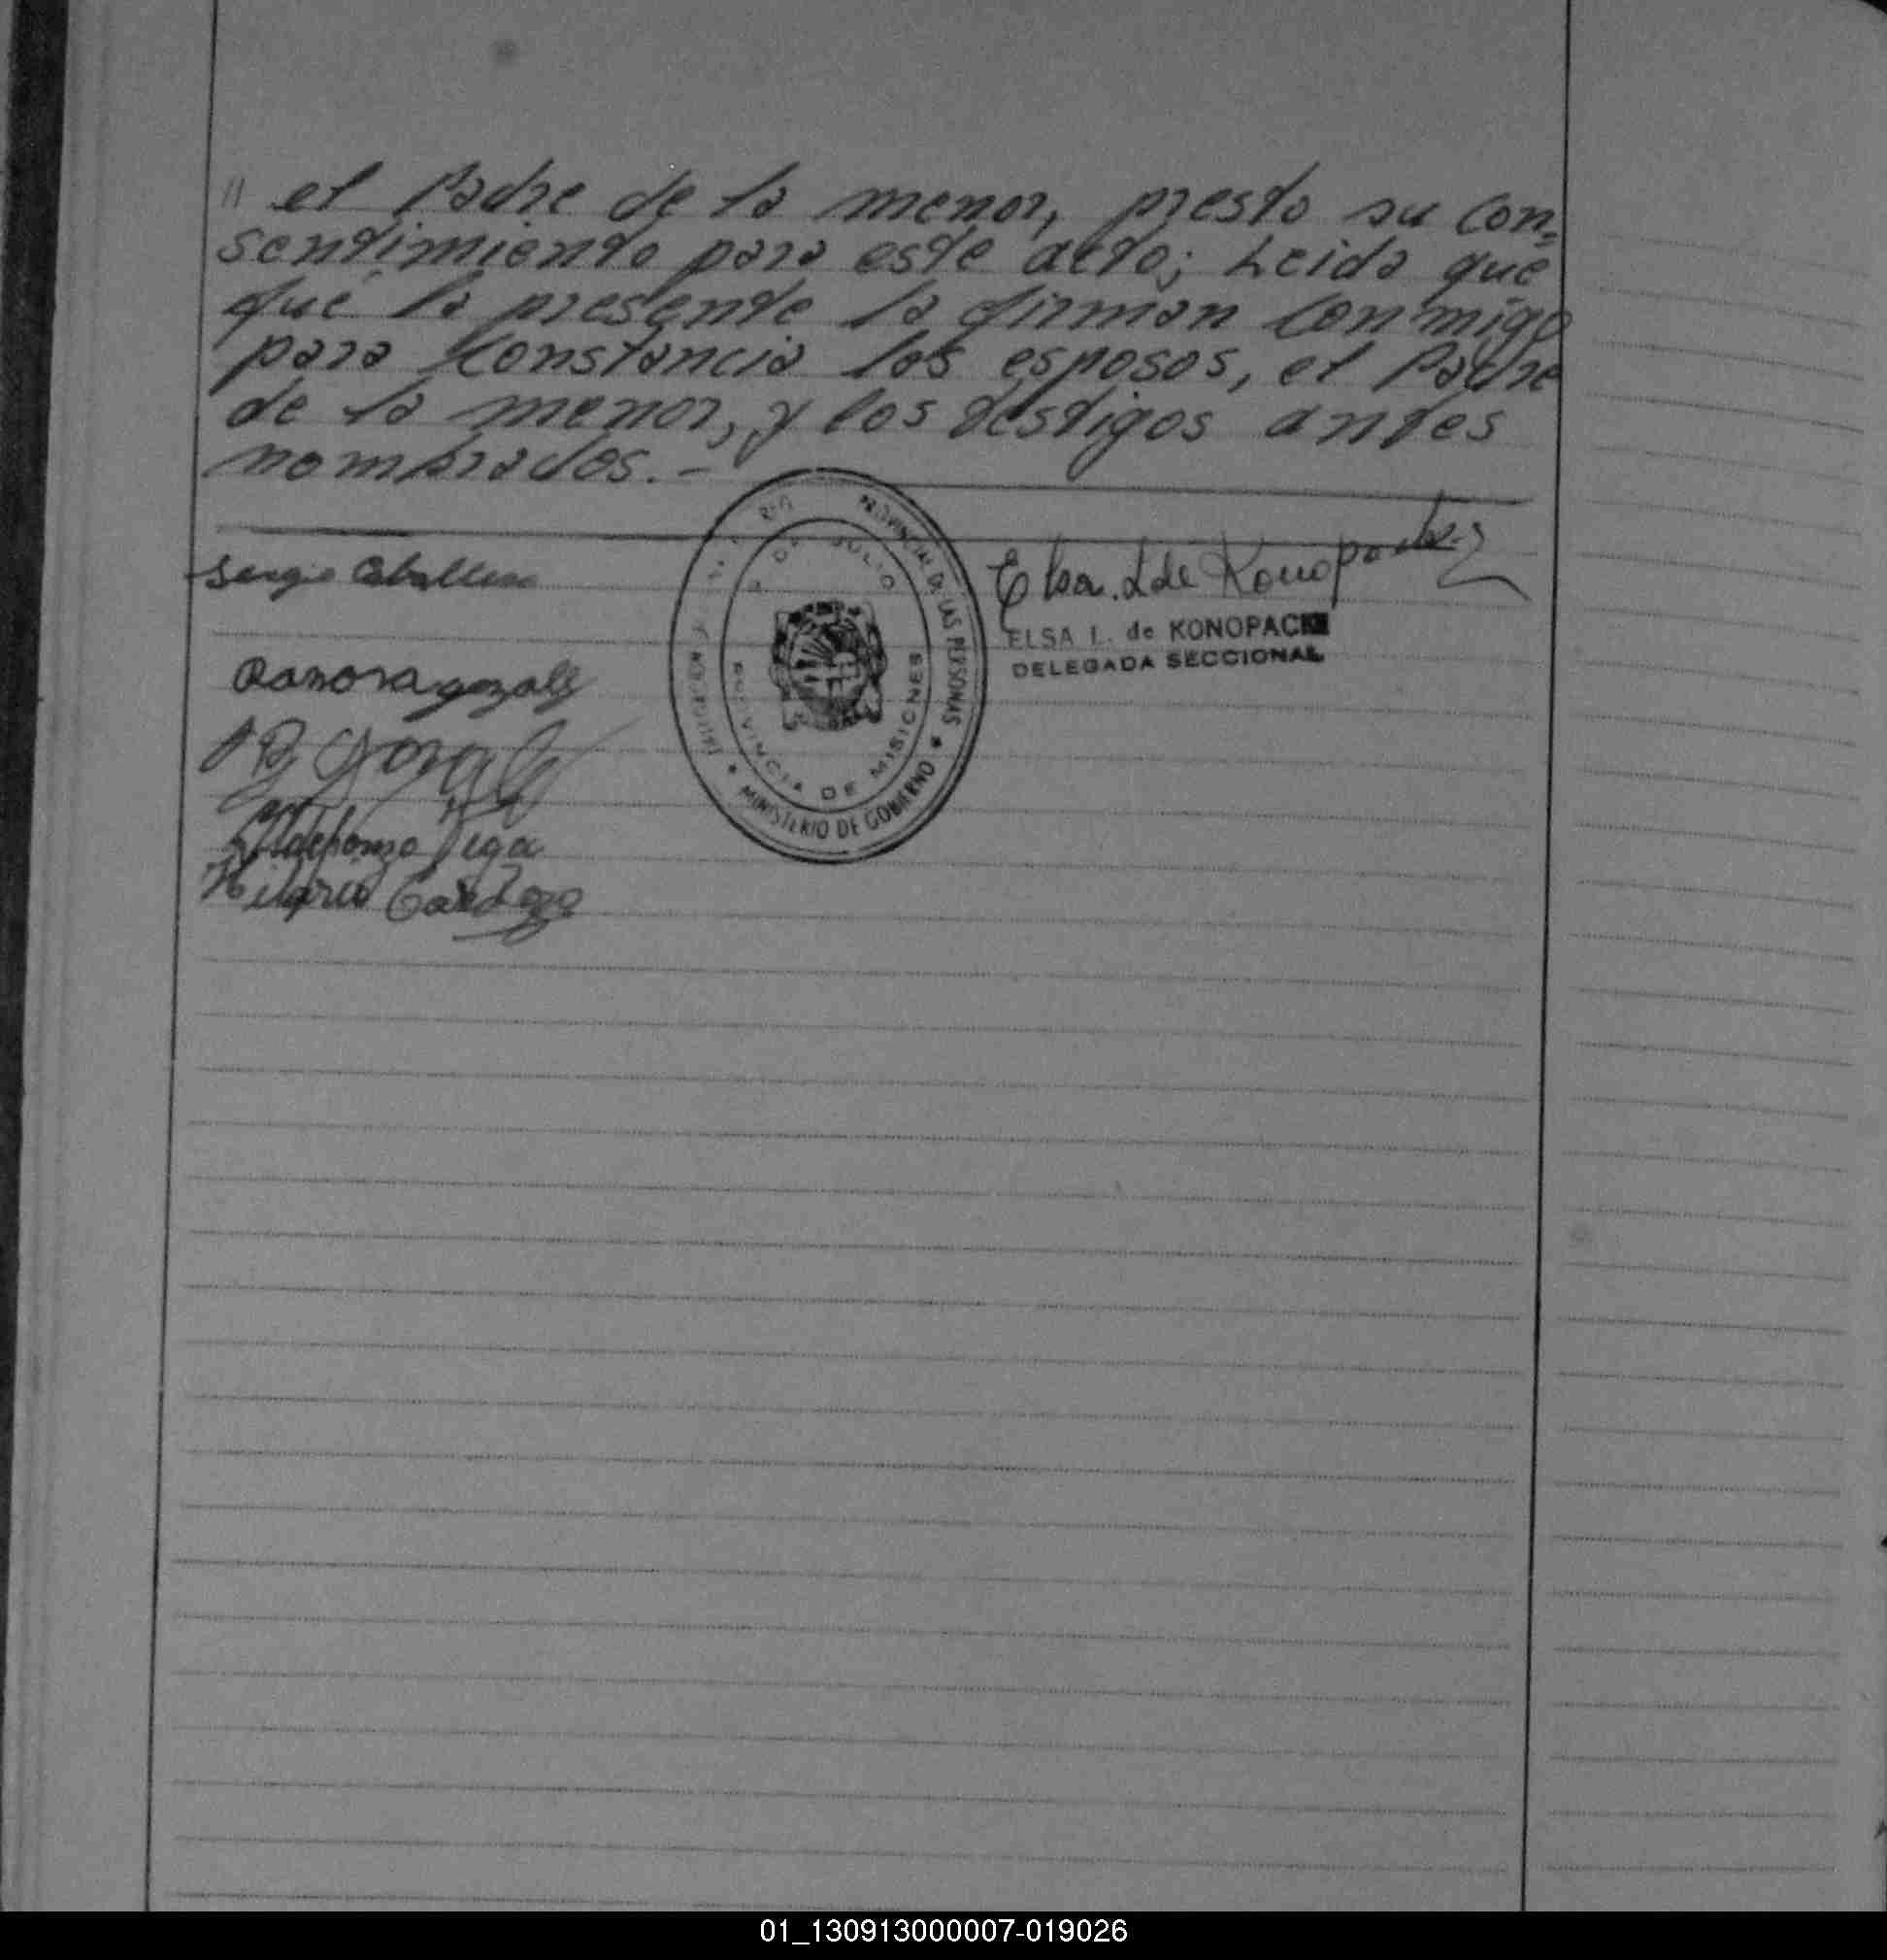 " el Padre de la menor, presto su con=
sentimiento para este acto; Leida que
fué la presente la firman conmigo
para constancia los esposos, el Padre
de la menor, y los testigos antes
nombrados.-
Sergio Caballero
Ramona gonzalez
Ildefonzo Vega
Hilario Cardozo
PROVINCIAL DE LAS PERSONAS
MINISTERIO DE GOBIERNO
9 DE JULIO
PROVINCIA DE MISIONES
Elsa. L de Konopacki
ELSA L. de KONOPACKI
DELEGADA SECCIONAL
01_130913000007-019026